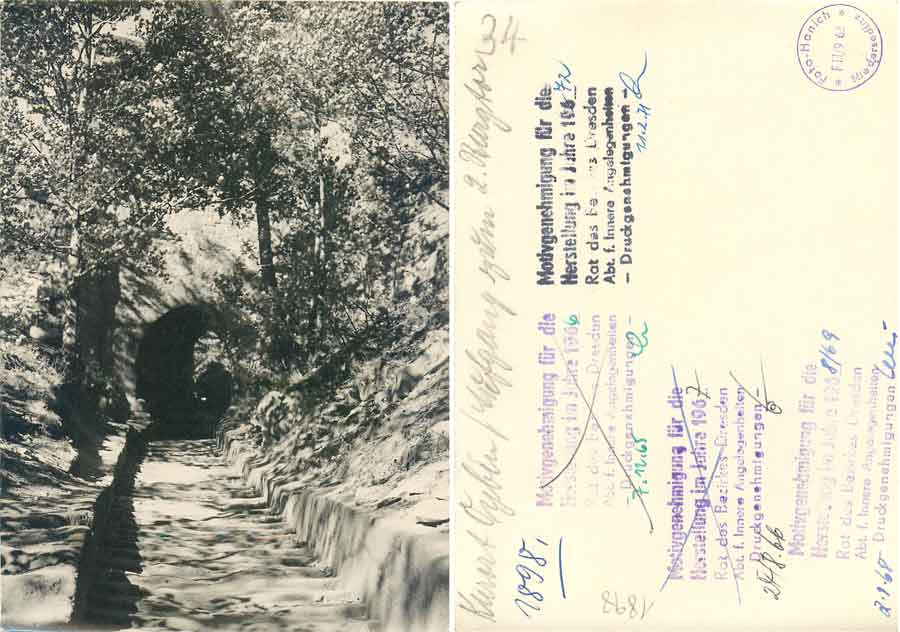 34
Foto-Hanich * Seifhennersdorf *
F III/9 62
Kurort Oybin / Aufgang zum 2. Burgtor
Motivgenehmigung für die
Herstellung im Jahre 1972
Rat des Bezirkes Dresden
Abt. f. Innere Angelegenheiten
– Druckgenehmigungen –
Motivgenehmigung für die
Herstellung im Jahre 1966
Rat des Bezirkes Dresden
Abt. f. Innere Angelegenheiten
– Druckgenehmigungen –
7.12.65
Motivgenehmigung für die
Herstellung im Jahre 1967
Rat des Bezirkes Dresden
Abt. f. Innere Angelegenheiten
– Druckgenehmigungen –
24.8.66
Motivgenehmigung für die
Herstellung im Jahre 1968/69
Rat des Bezirkes Dresden
Abt. f. Innere Angelegenheiten
– Druckgenehmigungen –
2.1.68
1898,
189